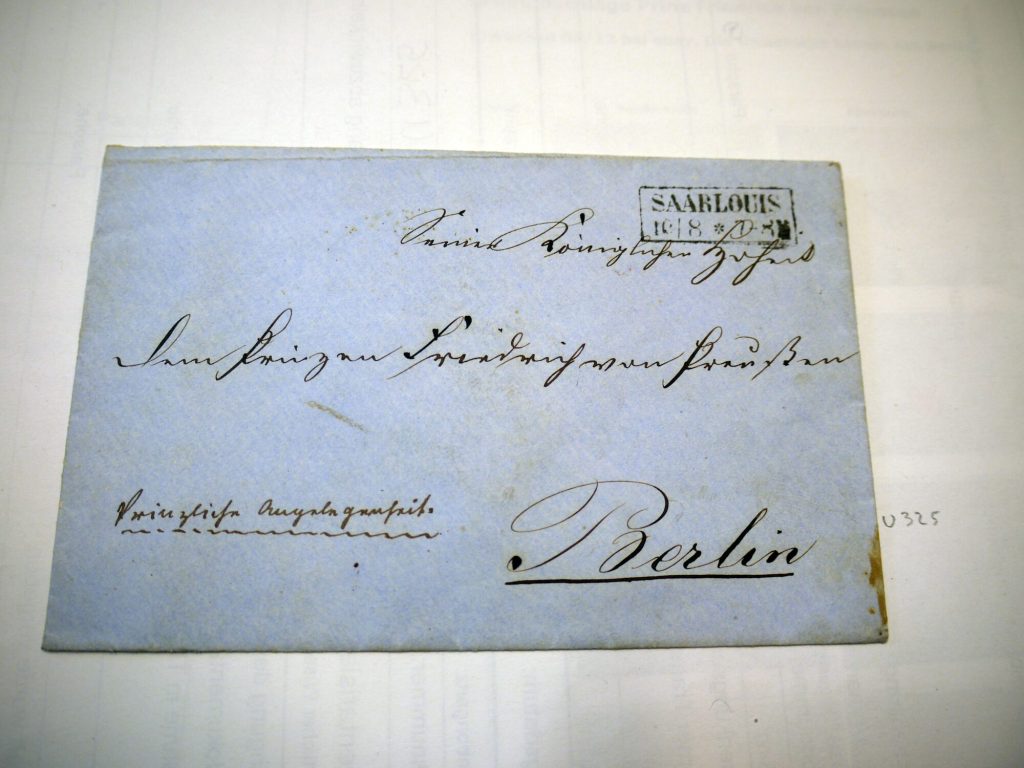 SAARLOUIS
10/8 *
Seiner Königlichen Hoheit
dem Prinzen Friedrich von Preußen
Prinzliche Angelegenheit.
Berlin
U325